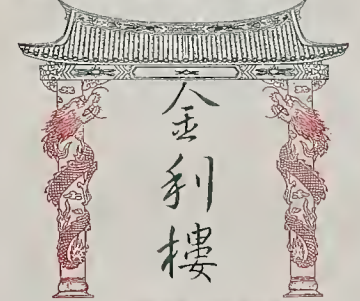 金利樓